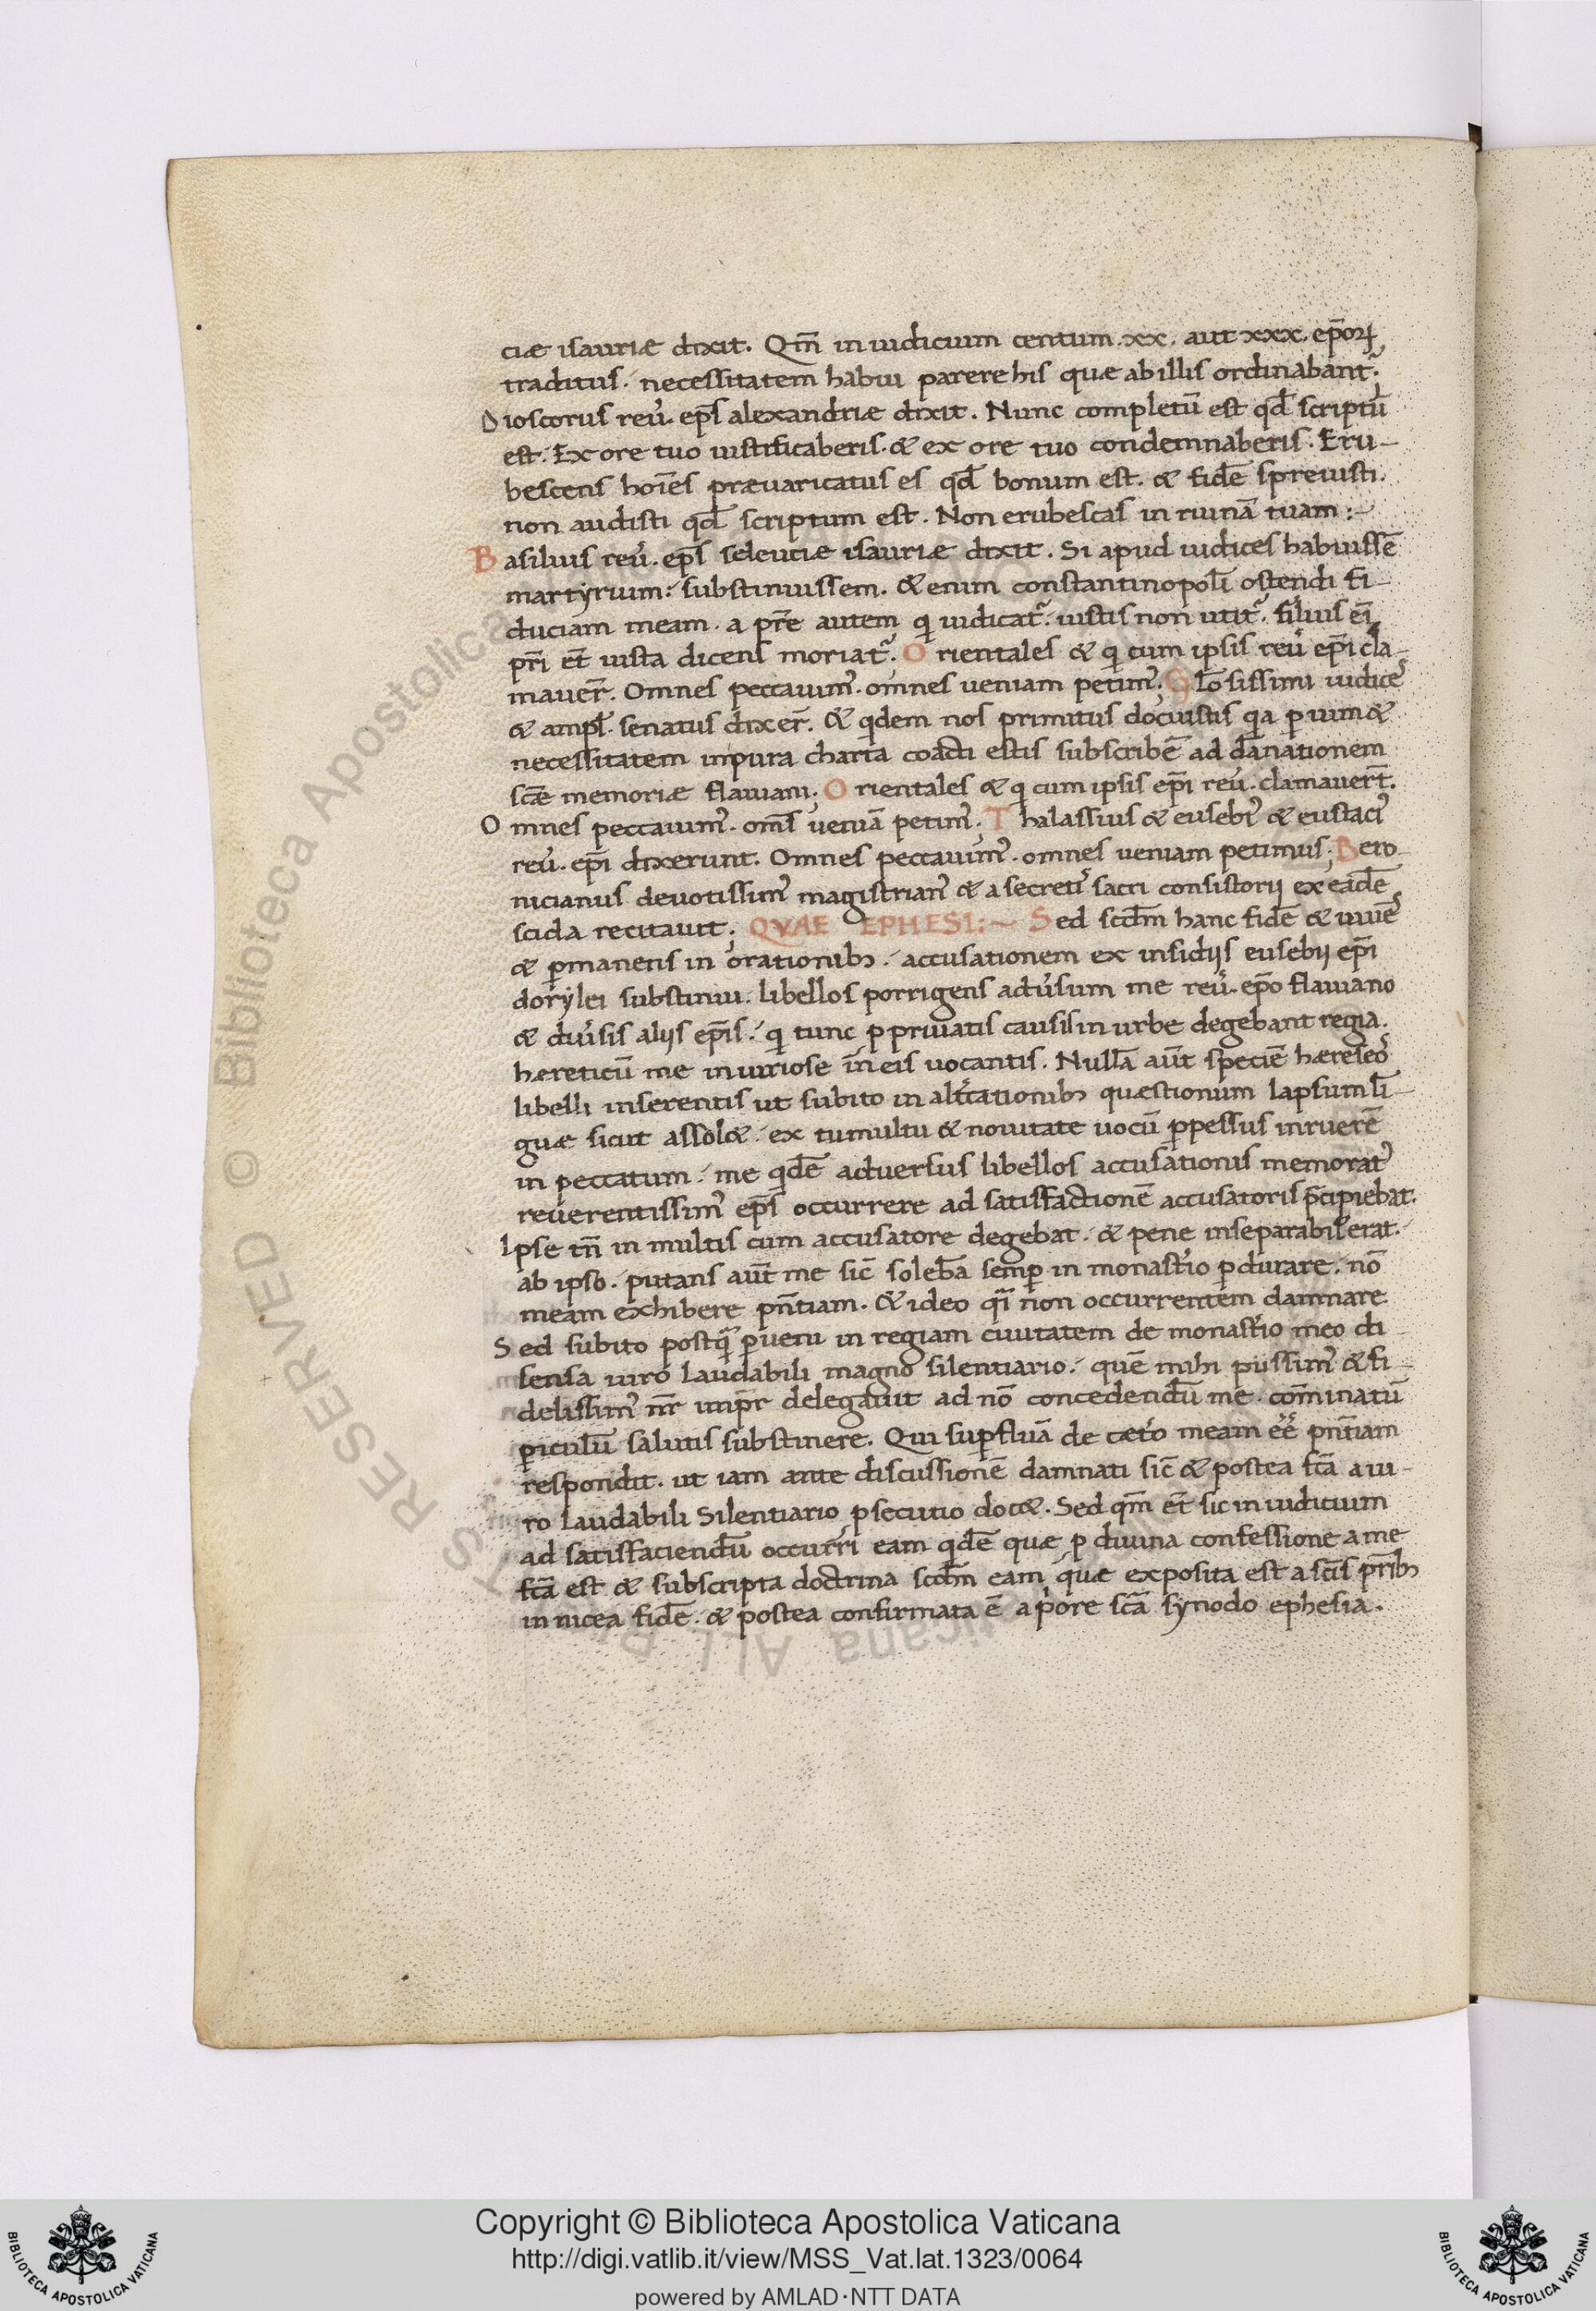 ciæ isauriæ dixit. Qm̄ in iudicium centum. xx. aut xxx. ep̄oꝝ
traditus. necessitatem habui parere his quæ ab illis ordinabant᷑.
Dioscorus reu᷑. ep̄s alexandriæ dixit. Nunc completū est qd̄ scriptū
est. Ex ore tuo iustificaberis. & ex ore tuo condemnaberis. Eru-
bescens hoīes præuaricatus es qd̄ bonum est. & fidē spreuisti.
non audisti qd̄ scriptum est. Non erubescas in ruinā tuam:-
Basilius reu᷑. ep̄s seleuciæ isauriæ dixit. Si apud iudices habuissē
martyrium: substinuissem. & enim constantinopoli ostendi fi-
duciam meam. a pr̄e autem qi iudicat᷑. iustis non utit᷑. filius ei
pr̄i et̄ iusta dicens moriat᷑. Orientales & qi cum ipsis reu᷑ ep̄i cla-
mauer̄. Omnes peccauim᷒. omnes ueniam petim᷒. Gl̄osissimi iudice᷒
& ampl̄. senatus dixer̄. & qidem nos primitus docuistis qia ꝑ uim &
necessitatem inpura charta coacti estis subscribē ad dānationem
scǣ memoriæ flauiani. Orientales & qi cum ipsis ep̄i reu᷑. clamauer̄t.
Omnes peccauim᷒. om̄s ueniā petim᷒. Thalassius & eusebi᷒ & eustaci᷒
reu᷑. ep̄i dixerunt. Omnes peccauim᷒. omnes ueniam petimus. Bero-
nicianus deuotissim᷒ magistrian᷒ & a secreti᷒ sacri consistorij ex eadē
scida recitauit. QVAE EPHESI:~ Sed scdm̄ hanc fidē & uiue᷒
& ꝑmanens in orationibꝫ. accusationem ex insidijs eusebij ep̄i
dorylei substinui. libellos porrigens adu᷑sum me reu᷑. ep̄o flauiano
& diu᷑sis alijs ep̄is. qi tunc ꝓ priuatis causis in urbe degebant regia.
hæreticū me iniuriose in eis uocantis. Nullā aūt speciē hæreseo᷒
libelli inserentis ut subito in alt᷑cationibꝫ quæstionum lapsum li-
guæ sicut assol&. ex tumultu & nouitate uocū ꝑpessus inruerē
in peccatum. me qidē aduersus libellos accusationis memorat᷒
reuerentissim᷒ ep̄s occurrere ad satisfactionē accusatoris p̄cipiebat.
Ipse tn̄ in multis cum accusatore degebat. & pene inseparabil᷒ erat.
ab ipso. putans aūt me sic̄ solebā semꝑ in monast᷑io ꝑdurare. nō
meam exhibere pn̄tiam. & ideo qa̅si non occurrentem damnare.
Sed subito postqa̅ ꝑueni in regiam ciuitatem de monast᷑io meo di-
sensa uiro laudabili magno silentiario. quē mihi piissim᷒ & fi-
delissim᷒ nr̄ imp̄r delegauit ad nō concedendū me. cōminatū
ꝑiculū salutis substinere. Qui suꝑfluā de cæt᷑o meam eē᷑ pn̄tiam
respondit. ut iam ante discussionē damnati sic̄ & postea fc̄a a ui-
ro laudabili Silentiario ꝑsecutio doc&. Sed qm̄ et̄ sic in iudicium
ad satisfaciendū occurri eam qidē quæ ꝓ diuina confessione a me
fc̄a est & subscripta doctrina scdm̄ eam quæ exposita est a sc̄is pr̄ibꝫ
in nicea fidē. & postea confirmata ē a p᷑ore sc̄a synodo ephesia.
Copyright © Biblioteca Apostolica Vaticana
http://digi.vatlib.it/view/MSS_Vat.lat.1323/0064
powered by AMLAD·NTT DATA